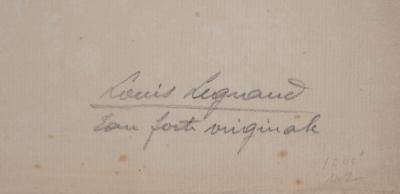 Louis Legrand
Eau forte originale